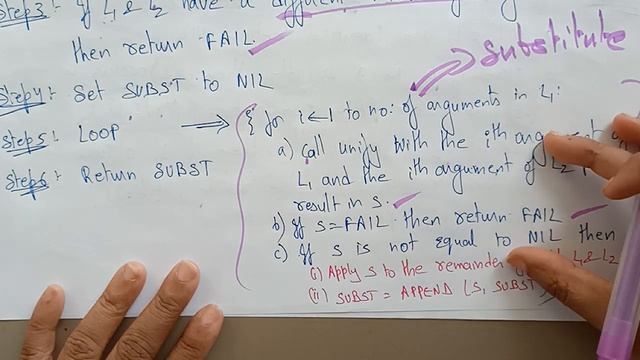 Step3: If L1 & L2 have a different
then return FAIL
Step4: Set SUBST to NIL
substitute
Step5: LOOP → { for i ← 1 to no: of arguments in L1:
a) call unify with the ith argument
L1 and the ith argument of L2
result in S.
Step6: Return SUBST
b) If S=FAIL then return FAIL
c) If S is not equal to NIL then
(i) Apply S to the remainder L1 & L2
(ii) SUBST = APPEND (S, SUBST